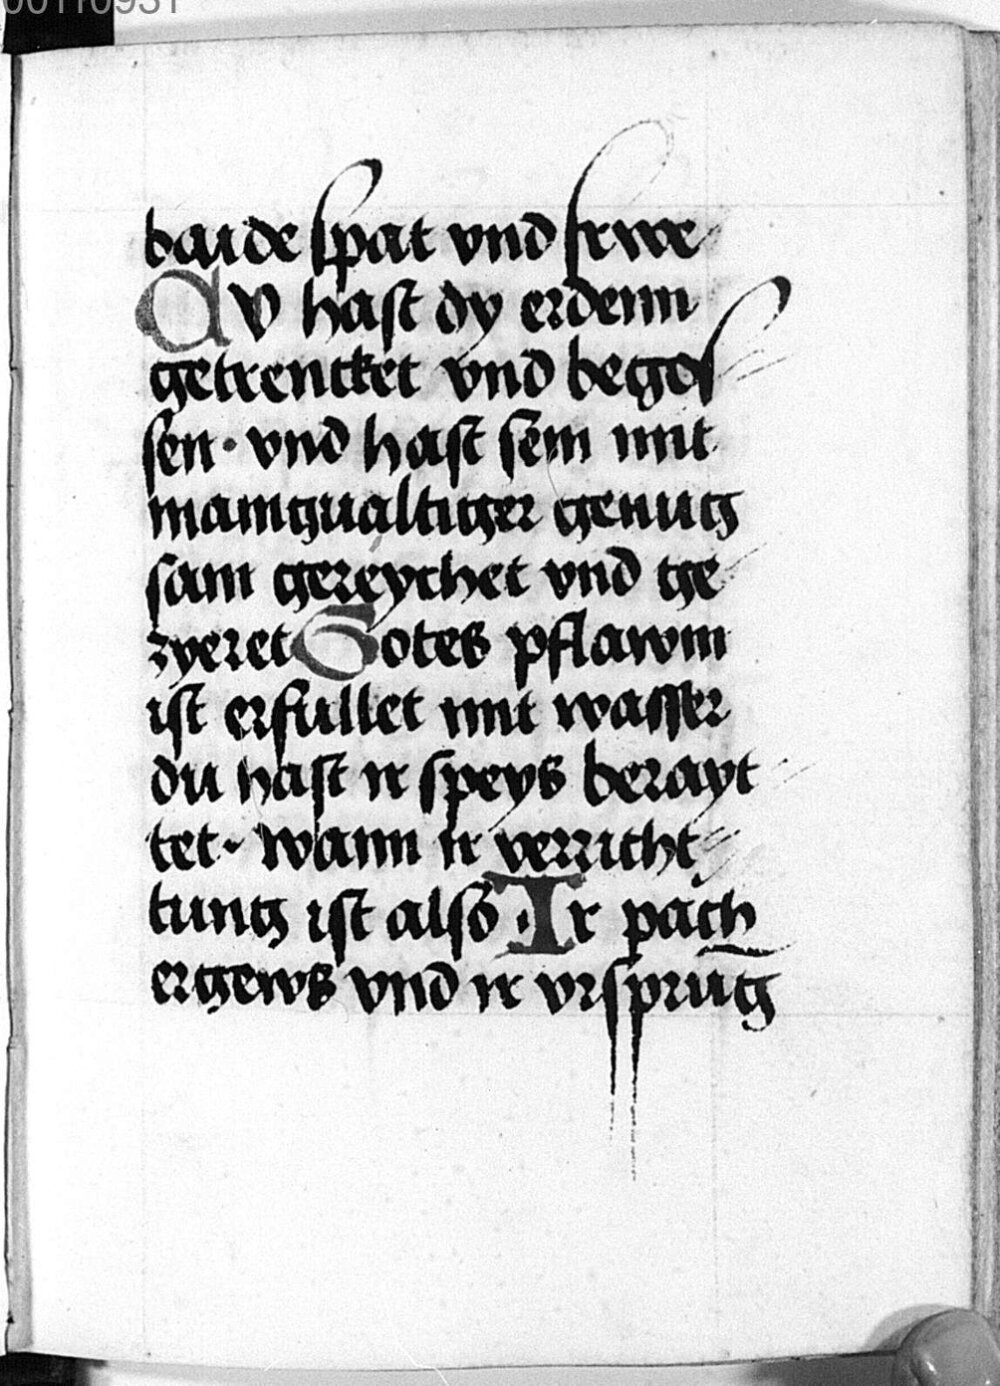 00110931
baide spat vnd frwe
Du hast dy erdenn
getrencket vnd begos
sen · vnd hast sein mit
manigualtiger genug
sam gereychet vnd ge
zyeret Gotes pflawm
ist erfullet mit wasser
du hast ir speys berayt
tet · wann ir verricht
tung ist also · Ir pach
ergews vnd ir vrsprug